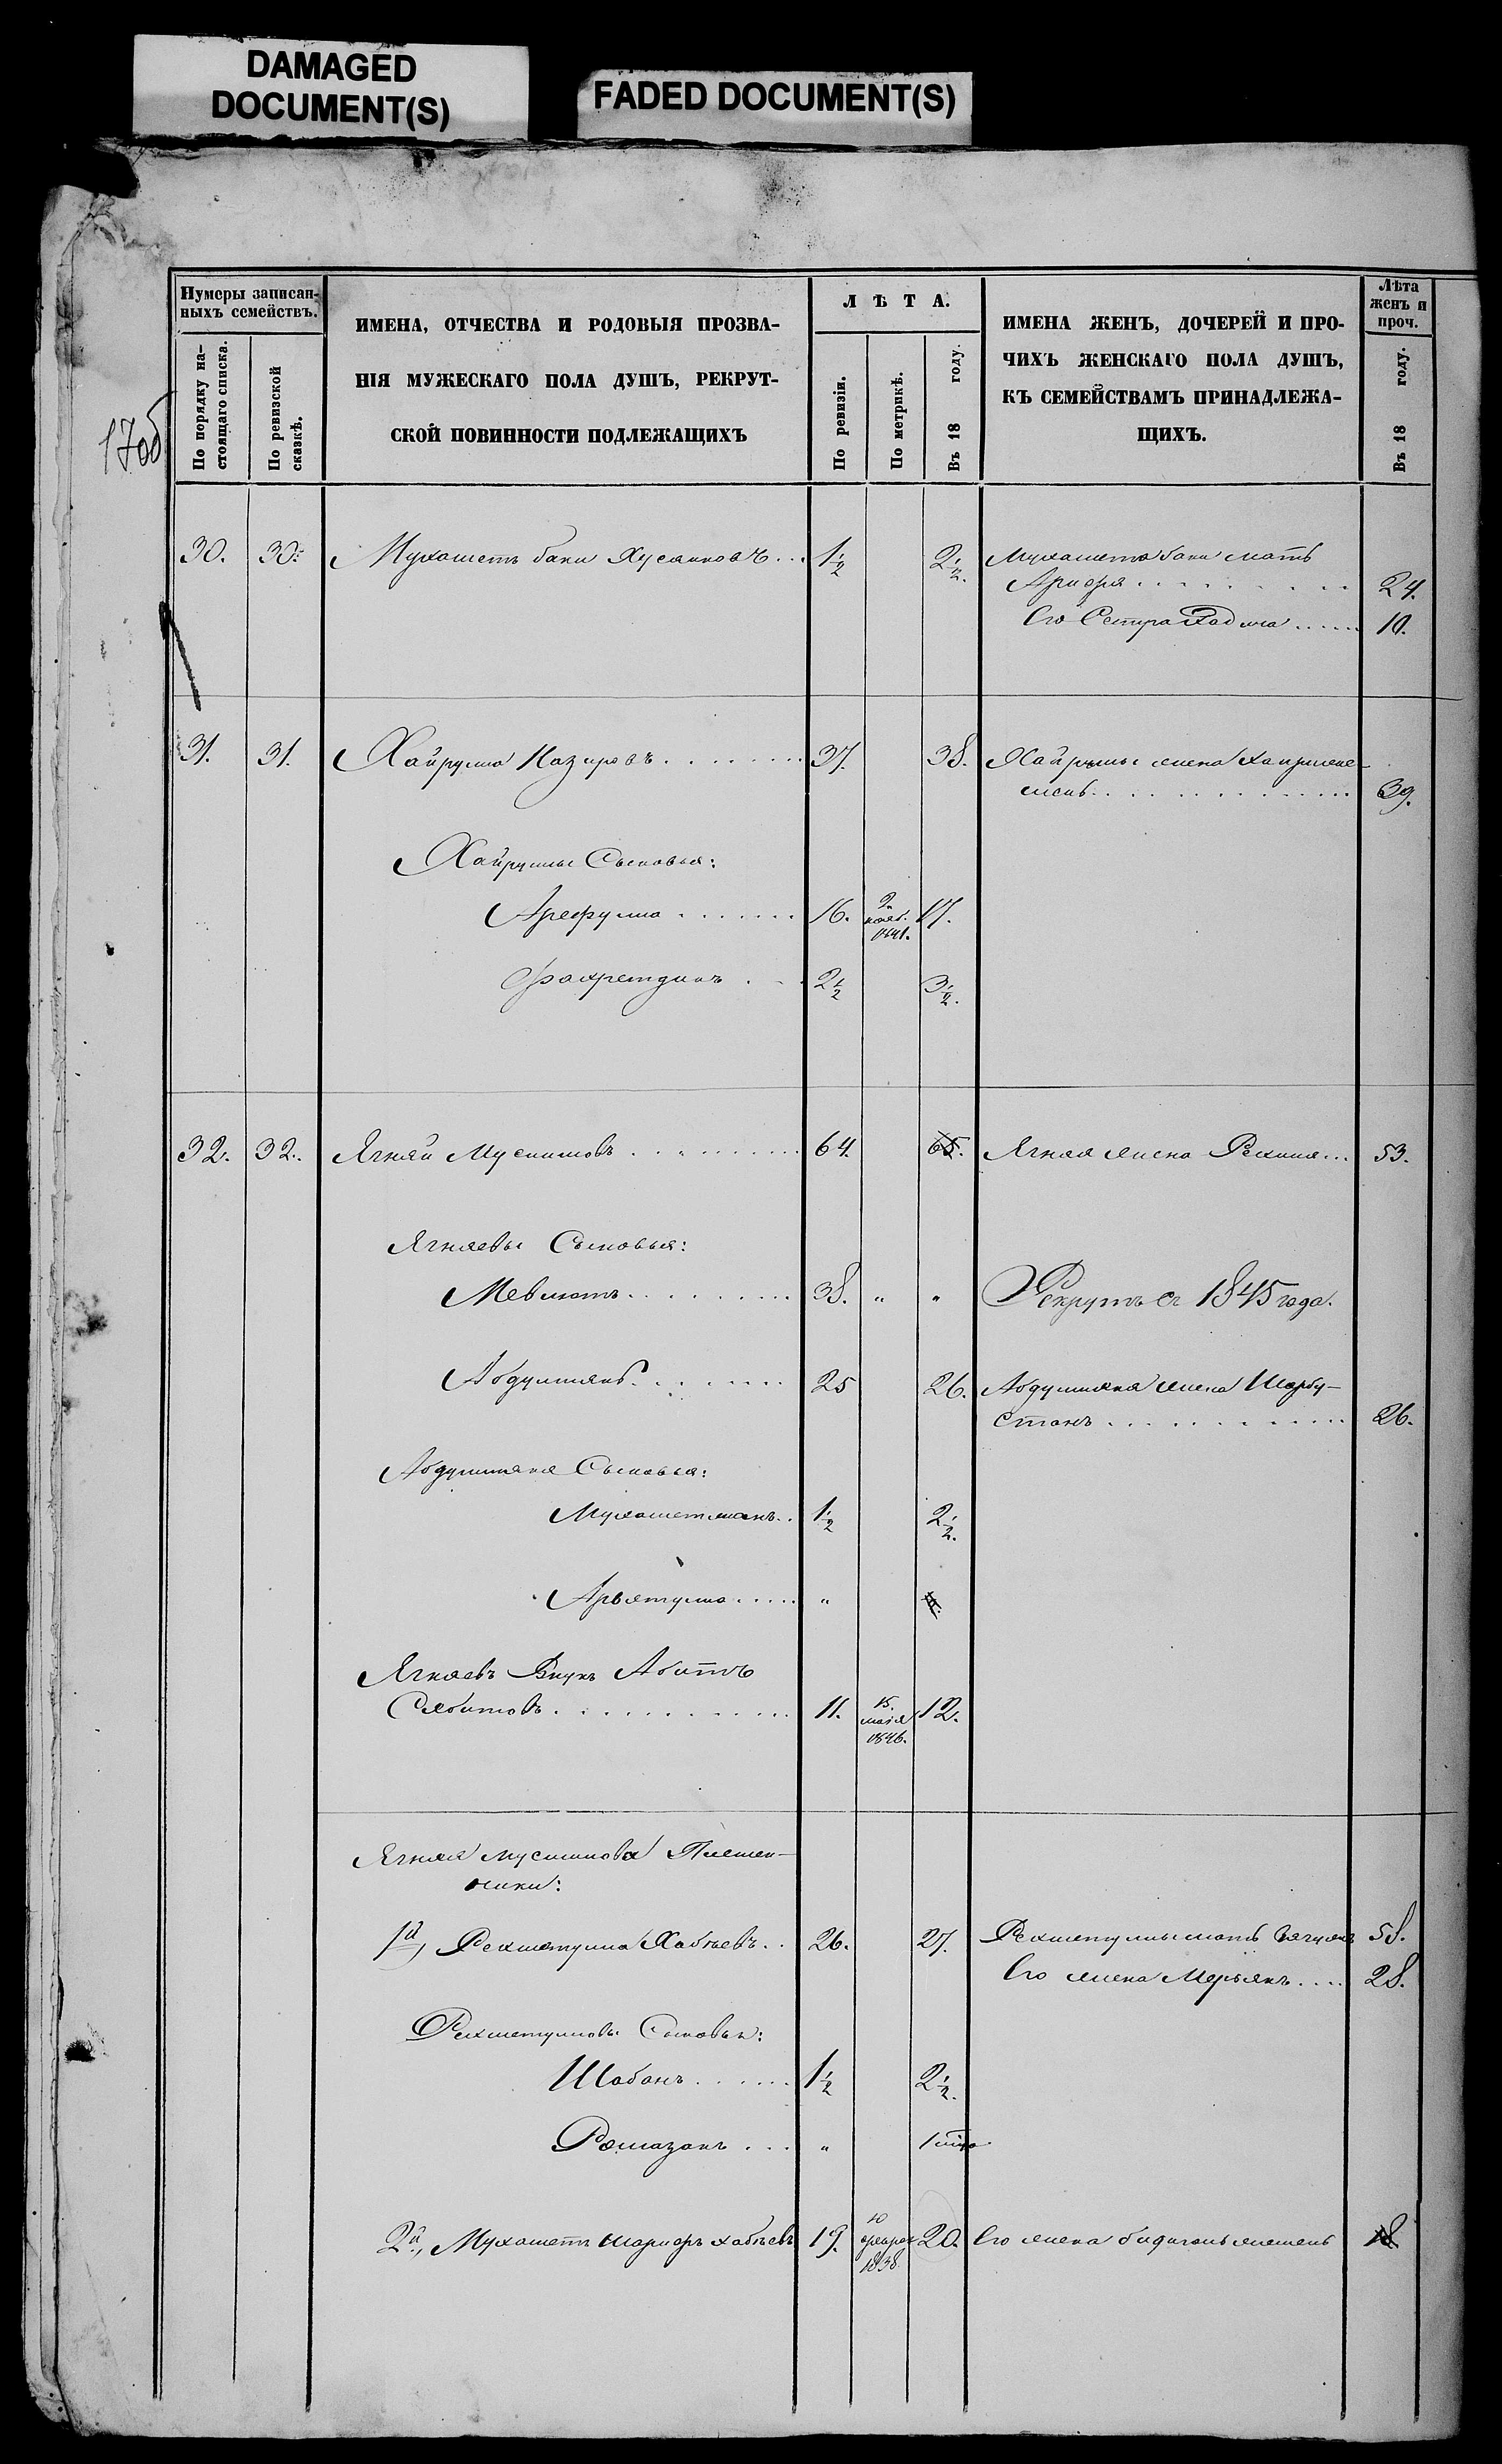 DAMAGED
DOCUMENT(S)
FADED DOCUMENT(S)
17об
Нумеры записан-
ныхъ семействъ.
По порядку на-
стоящаго списка.
По ревизской
сказкѣ.
ИМЕНА, ОТЧЕСТВА И РОДОВЫЯ ПРОЗВА-
НІЯ МУЖЕСКАГО ПОЛА ДУШЪ, РЕКРУТ-
СКОЙ ПОВИННОСТИ ПОДЛЕЖАЩИХЪ
ЛѢТА.
По ревизіи.
По метрикѣ.
Въ 18 году.
ИМЕНА ЖЕНЪ, ДОЧЕРЕЙ И ПРО-
ЧИХЪ ЖЕНСКАГО ПОЛА ДУШЪ,
КЪ СЕМЕЙСТВАМЪ ПРИНАДЛЕЖА-
ЩИХЪ.
Лѣта
женъ и
проч.
Въ 18 году.
30. 30. Мухаметъ баки Хусаиновъ... 1½ 2½. Мухаметъ баки мать
Арифя 24.
Его Сестра Хадича 10.
31. 31. Хайрулла Назировъ 37. 38. Хайруллы жена
39.
Хайруллы Сыновья:
Арефулла 16. 9 нояб. 1841. 17.
Фахретдинъ 2½ 3½.
32. 32. Ягняй Муслимовъ 64. 65. Ягняя жена 53.
Ягняевы Сыновья:
Мевлютъ 38. " " Рекрутъ съ 1845 года.
Абдуллянъ 25 26. Абдулляна жена Шарбу-
станъ 26.
Абдулляна Сыновья:
Мухаметжанъ 1½ 2½.
Арьятулла "
Ягняевъ Внукъ Абитъ
Сябитовъ 11. 15. маія 1846. 12.
Ягняя Муслимова Племян-
ники:
1й, Рехметулла Хабѣевъ 26. 27. Рехметуллы мать 58.
Его жена Мерьянъ 28.
Рехметулловы Сыновья:
Шабанъ 1½ 2½.
Рамазанъ " 1
2й, Мухаметъ Шарифъ Хабѣевъ 19. 10 февраля 1838 20. Его жена 18